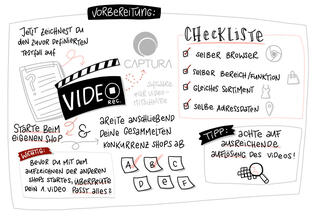 VORBEREITUNG:
JETZT ZEICHNEST DU
DEN ZUVOR DEFINIERTEN
TESTFALL AUF
CAPTURA
SOFTWARE
FÜR VIDEO-
MITSCHNITTE
VIDEO
REC.
CHECKLISTE
SELBER BROWSER
SELBER BEREICH/FUNKTION
GLEICHES SORTIMENT
SELBE ADRESSDATEN
STARTE BEIM
EIGENEN SHOP
&
ARBEITE ANSCHLIEßEND
DEINE GESAMMELTEN
KONKURRENZSHOPS AB
A B C
D E F
WICHTIG:
BEVOR DU MIT DEM
AUFZEICHNEN DER ANDEREN
SHOPS STARTEST, ÜBERPRÜFE
DEIN 1. VIDEO PASST ALLES?
TIPP:
ACHTE AUF
AUSREICHENDE
AUFLÖSUNG DES VIDEOS!